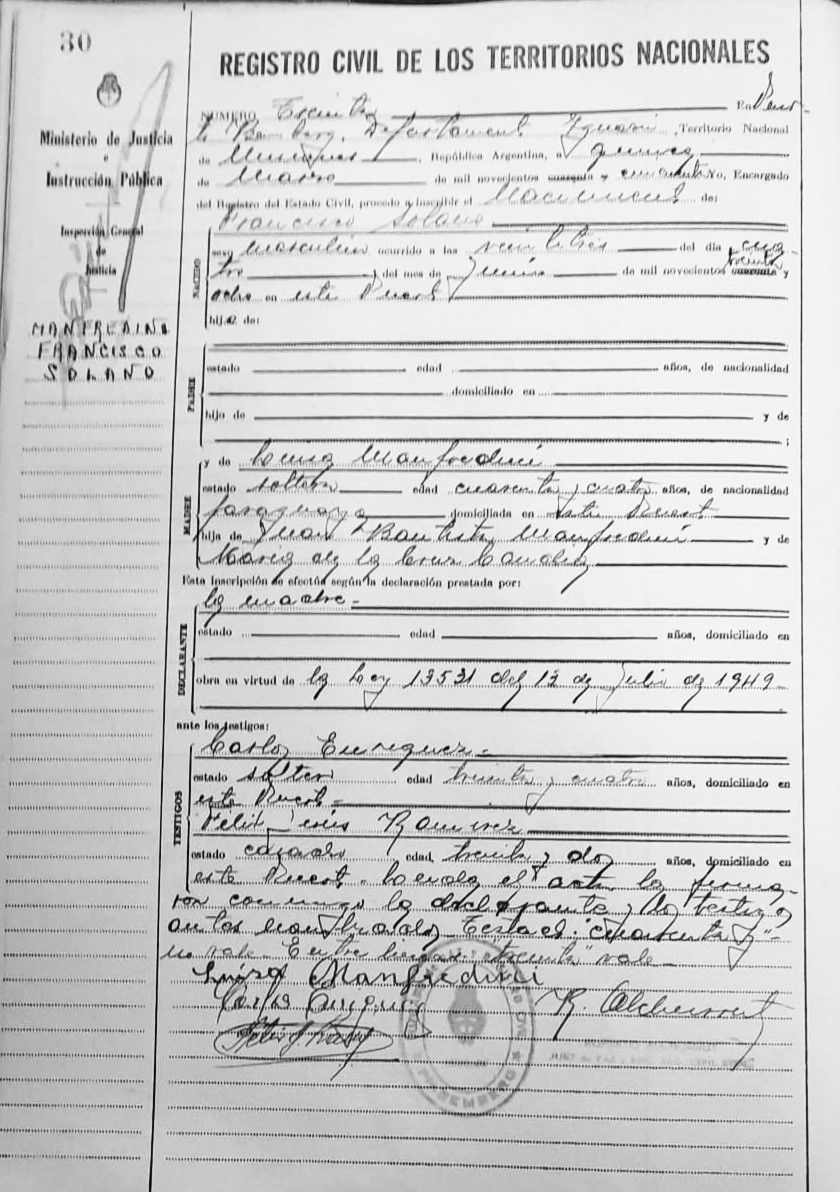 30
REGISTRO CIVIL DE LOS TERRITORIOS NACIONALES
Ministerio de Justicia
e
Instrucción Pública
Inspección General
de
Justicia
MANFREDINI
FRANCISCO
SOLANO
NUMERO Treinta En Puer-
to Bemberg, Departamento Iguazú, Territorio Nacional
de Misiones, República Argentina, a quince
de Marzo de mil novecientos cuarenta y cincuenta Yo, Encargado
del Registro del Estado Civil, procedo a inscribir el Nacimiento de:
Francisco Solano
NACIDO
sexo masculino ocurrido a las veintitrés del día cua-
tro, del mes de Junio de mil novecientos treinta cuarenta y
ocho en este Puerto
hijo de:
PADRE
estado edad años, de nacionalidad
domiciliado en
hijo de y de
;
y de Luisa Manfredini
MADRE
estado soltera edad cuarenta y cuatro años, de nacionalidad
paraguaya domiciliada en este Puerto
hija de Juan Bautista Manfredini y de
María de la Cruz Candia
Esta inscripción se efectúa según la declaración prestada por:
la madre-
DECLARANTE
estado edad años, domiciliado en
obra en virtud de la Ley 13531 del 12 de Julio de 1949-
ante los testigos:
TESTIGOS
Carlos Enriquez-
estado soltero edad treinta y cuatro años, domiciliado en
este Puerto-
Felix Jesús Ramirez
estado casado edad treinta y dos años, domiciliado en
este Puerto. Leída el acta la firma-
ron conmigo la declarante y los testigos
antes nombrados. Testado: cuarenta y"-
no vale- Entre líneas: treinta vale-
Luisa Manfredini
Carlos Enriquez